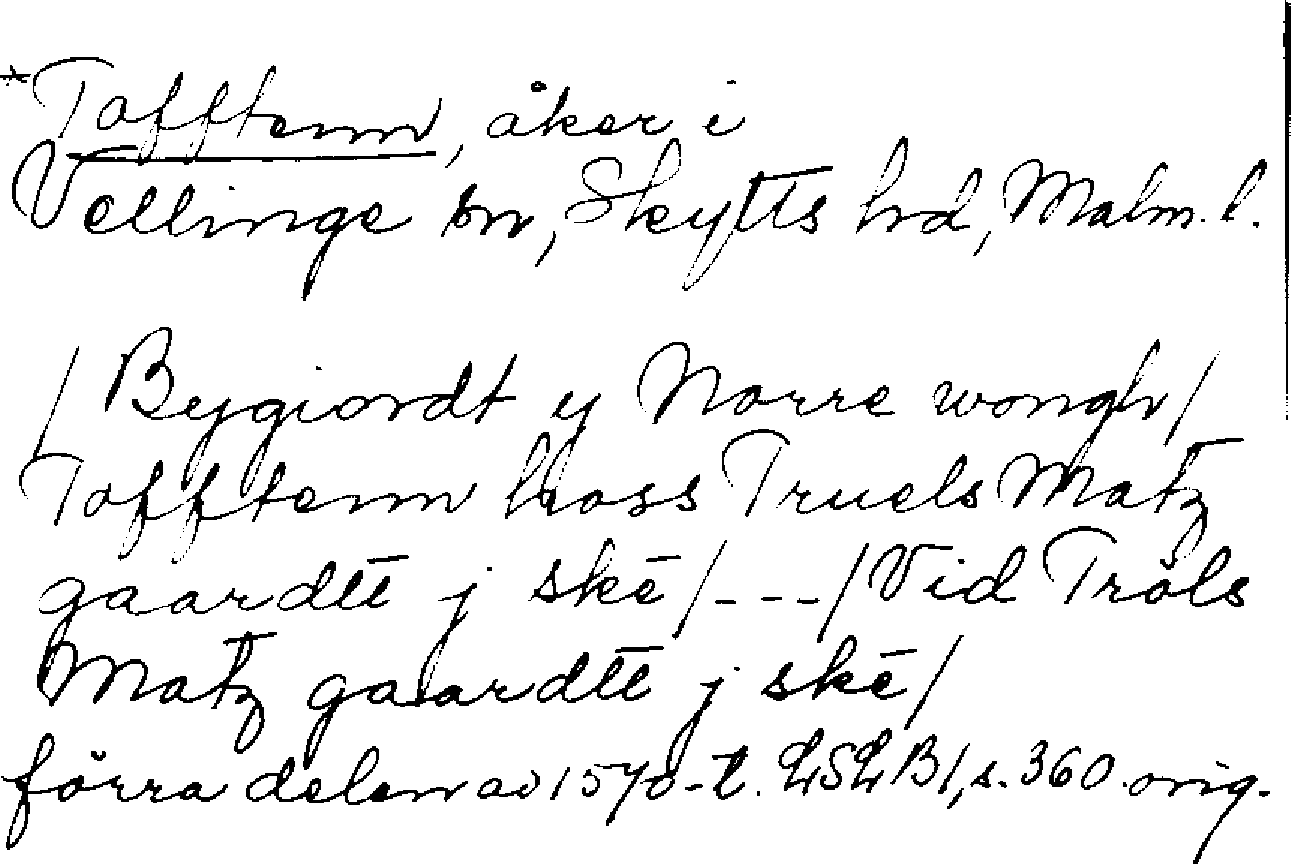 *Tofftenn, åker i
Vellinge sn, Skytts hd, Malm. l.
/ Bygiordt y Norre wongh /
Tofftenn hoss Truels Matz
gaardtt j skē / - - - / Vid Tröls
Matz gaardtt j skē /
förra delen av 1570-t. LSLB1, s. 360 orig.